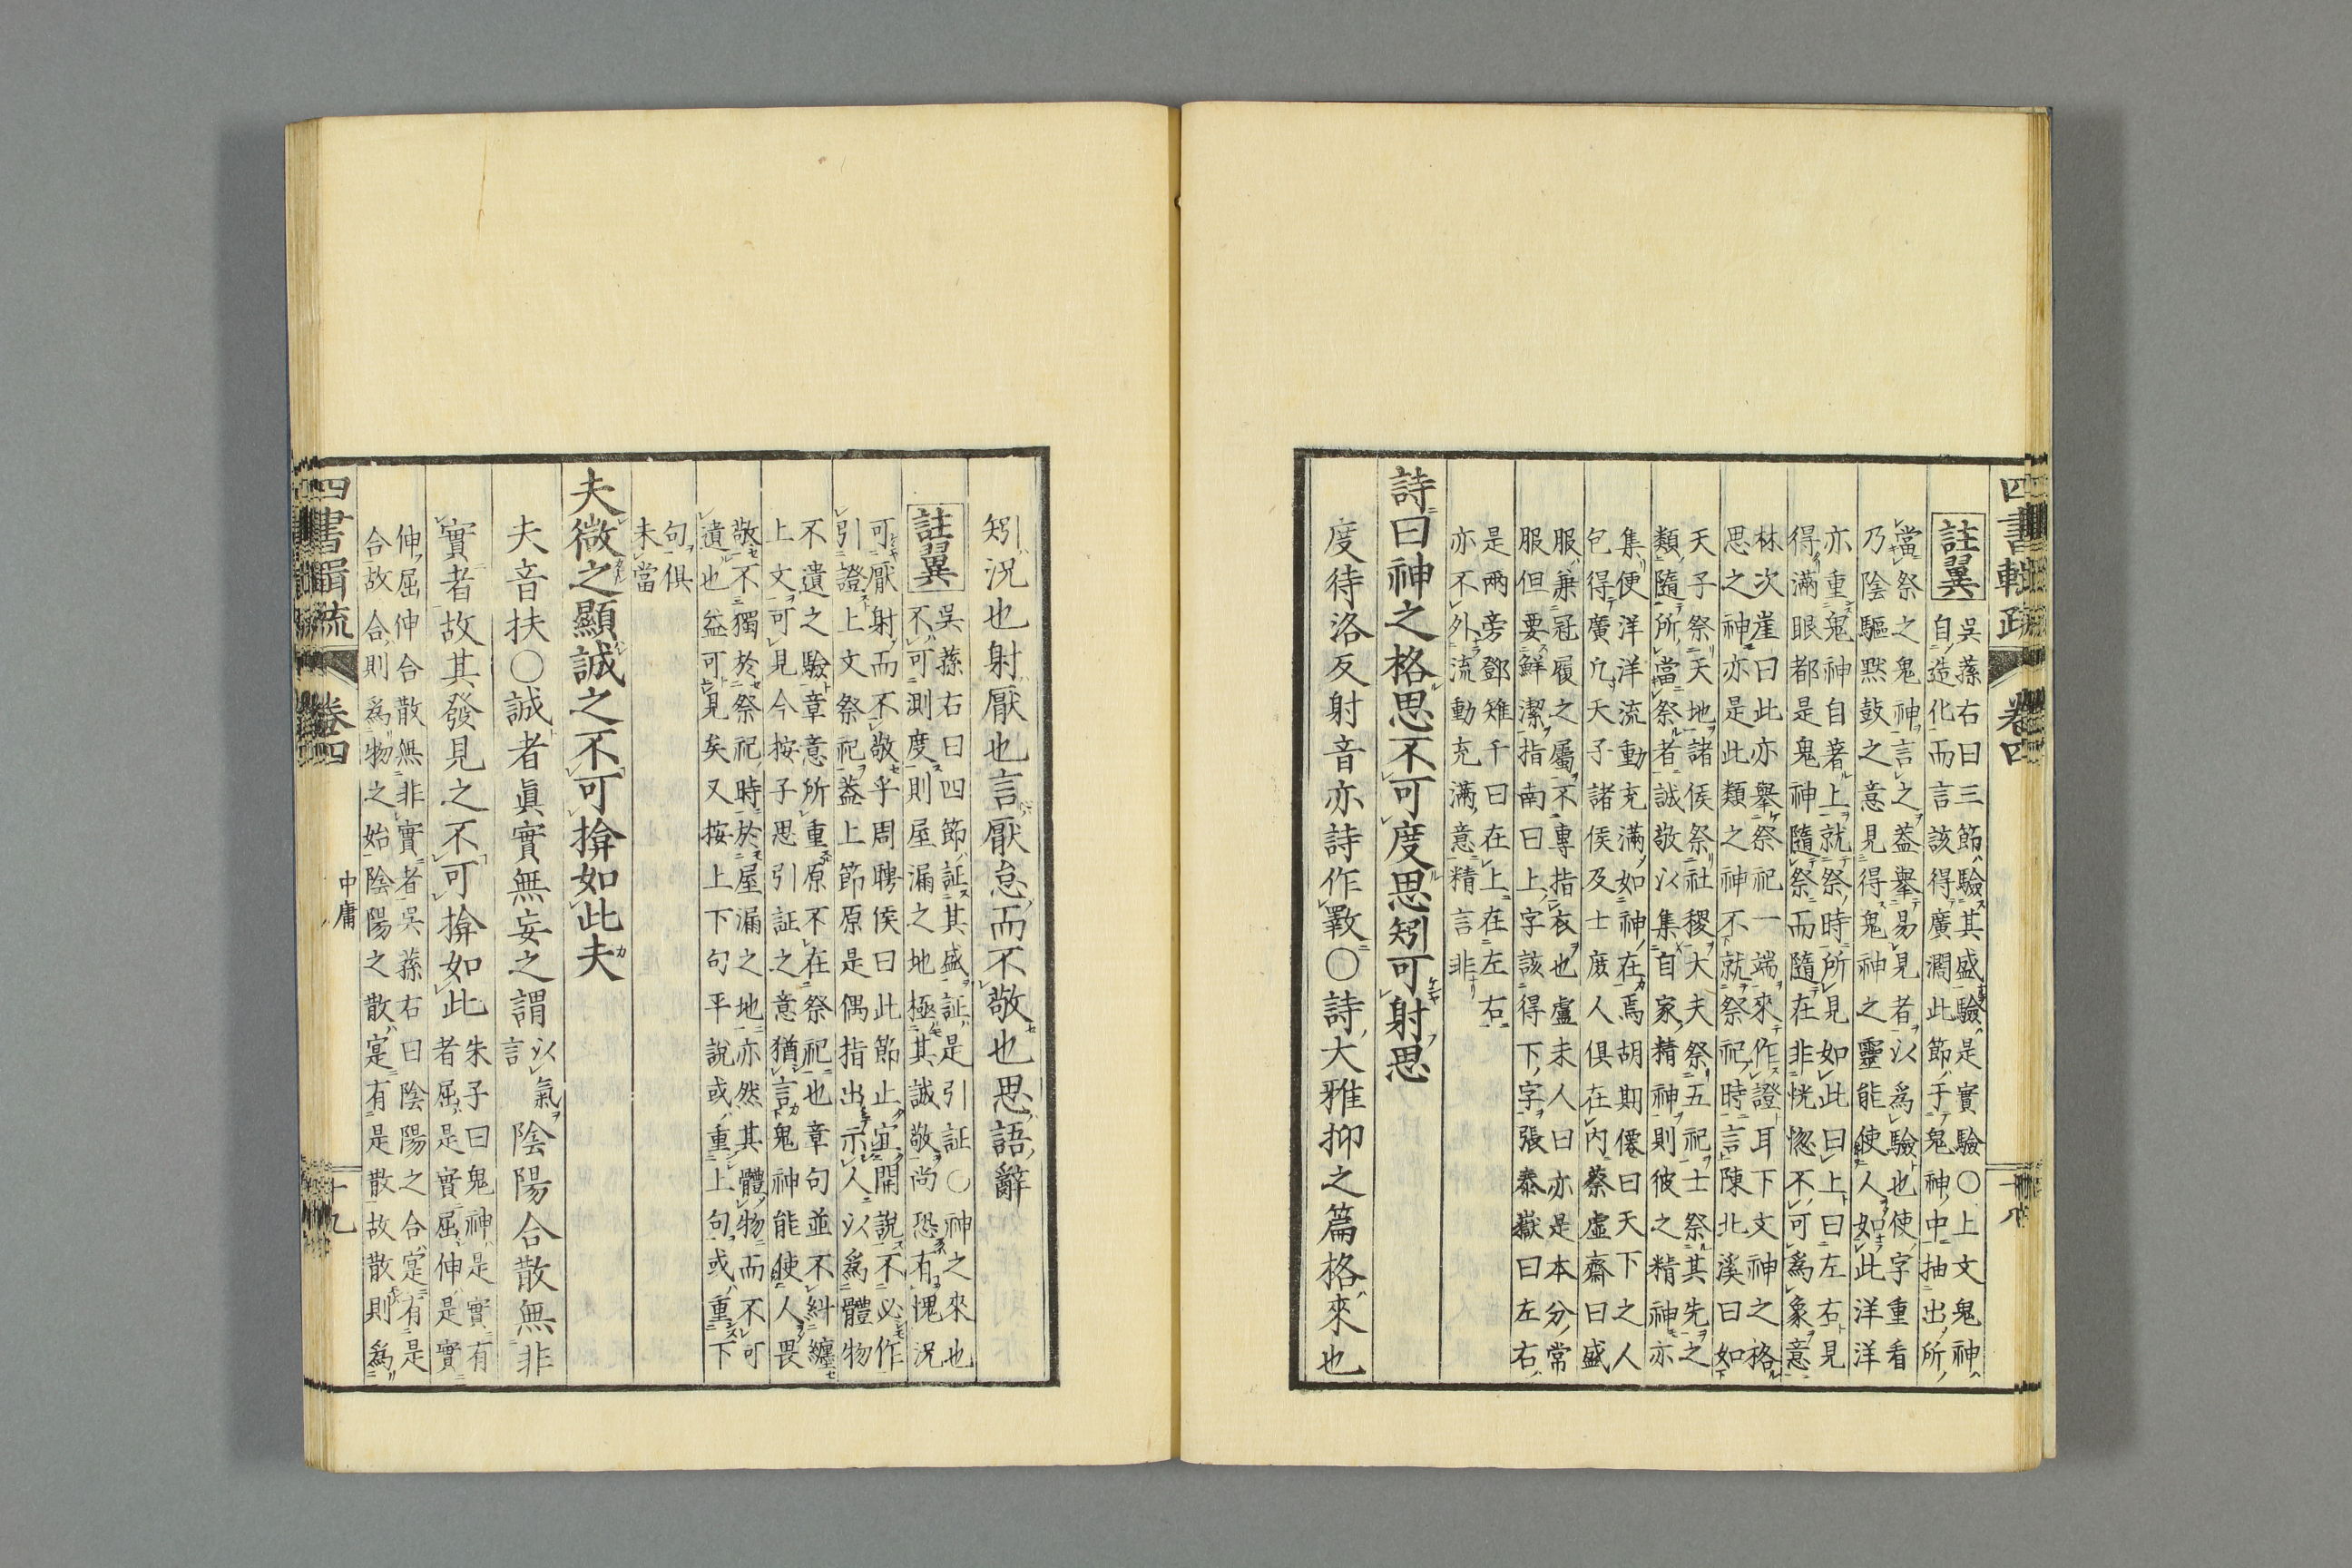 四書輯疏 卷四 十八
註翼
吳蓀右曰三節驗其盛驗是實驗○上文鬼神
自造化而言該得廣濶此節于鬼神中抽出所
當祭之鬼神言之葢舉易見者以爲驗也使字重看
乃陰驅黙鼓之意見得鬼神之靈能使人如此洋洋
亦重鬼神自著上就祭時所見如此曰上曰左右見
得滿眼都是鬼神隨祭而隨在非恍惚不可爲象意
林次崖曰此亦舉祭祀一端來作證耳下文神之格
思之神亦是此類之神不就祭祀時言陳北溪曰如
天子祭天地諸侯祭社稷大夫祭五祀士祭其先之
類隨所當祭者誠敬以集自家精神則彼之精神亦
集便洋洋流動充滿如神在焉胡期僊曰天下之人
包得廣凢天子諸侯及士庶人俱在內蔡虛齋曰盛
服兼冠履之屬不專指衣也盧未人曰亦是本分常
服但要鮮潔指南曰上字該得下字張泰嶽曰左右
是兩旁鄧雉千曰在上在左右
亦不外流動充滿意精言非
詩曰神之格思不可度思矧可射思
度待洛反射音亦詩作斁○詩大雅抑之篇格來也
矧況也射厭也言厭怠而不敬也思語辭
註翼
吳蓀右曰四節証其盛証是引証○神之來也
不可測度則屋漏之地極其誠敬尚恐有愧況
可厭射而不敬乎周聘侯曰此節止宜開說不必作
引證上文祭祀葢上節原是偶指出示人以爲體物
不遺之驗章意所重原不在祭祀也章句並不糾纏
上文可見今按子思引証之意猶言鬼神能使人畏
敬不獨於祭祀時於屋漏之地亦然其體物而不可
遺也益可見矣又按上下句平說或重上句或重下
句俱
未當
夫微之顯誠之不可揜如此夫
夫音扶○誠者眞實無妄之謂以氣言陰陽合散無非
實者故其發見之不可揜如此朱子曰鬼神是實有
者屈是實屈伸是實
伸屈伸合散無非實者吳蓀右曰陰陽之合寔有是
合故合則爲物之始陰陽之散寔有是散故散則爲
四書輯疏 卷四 中庸 十九